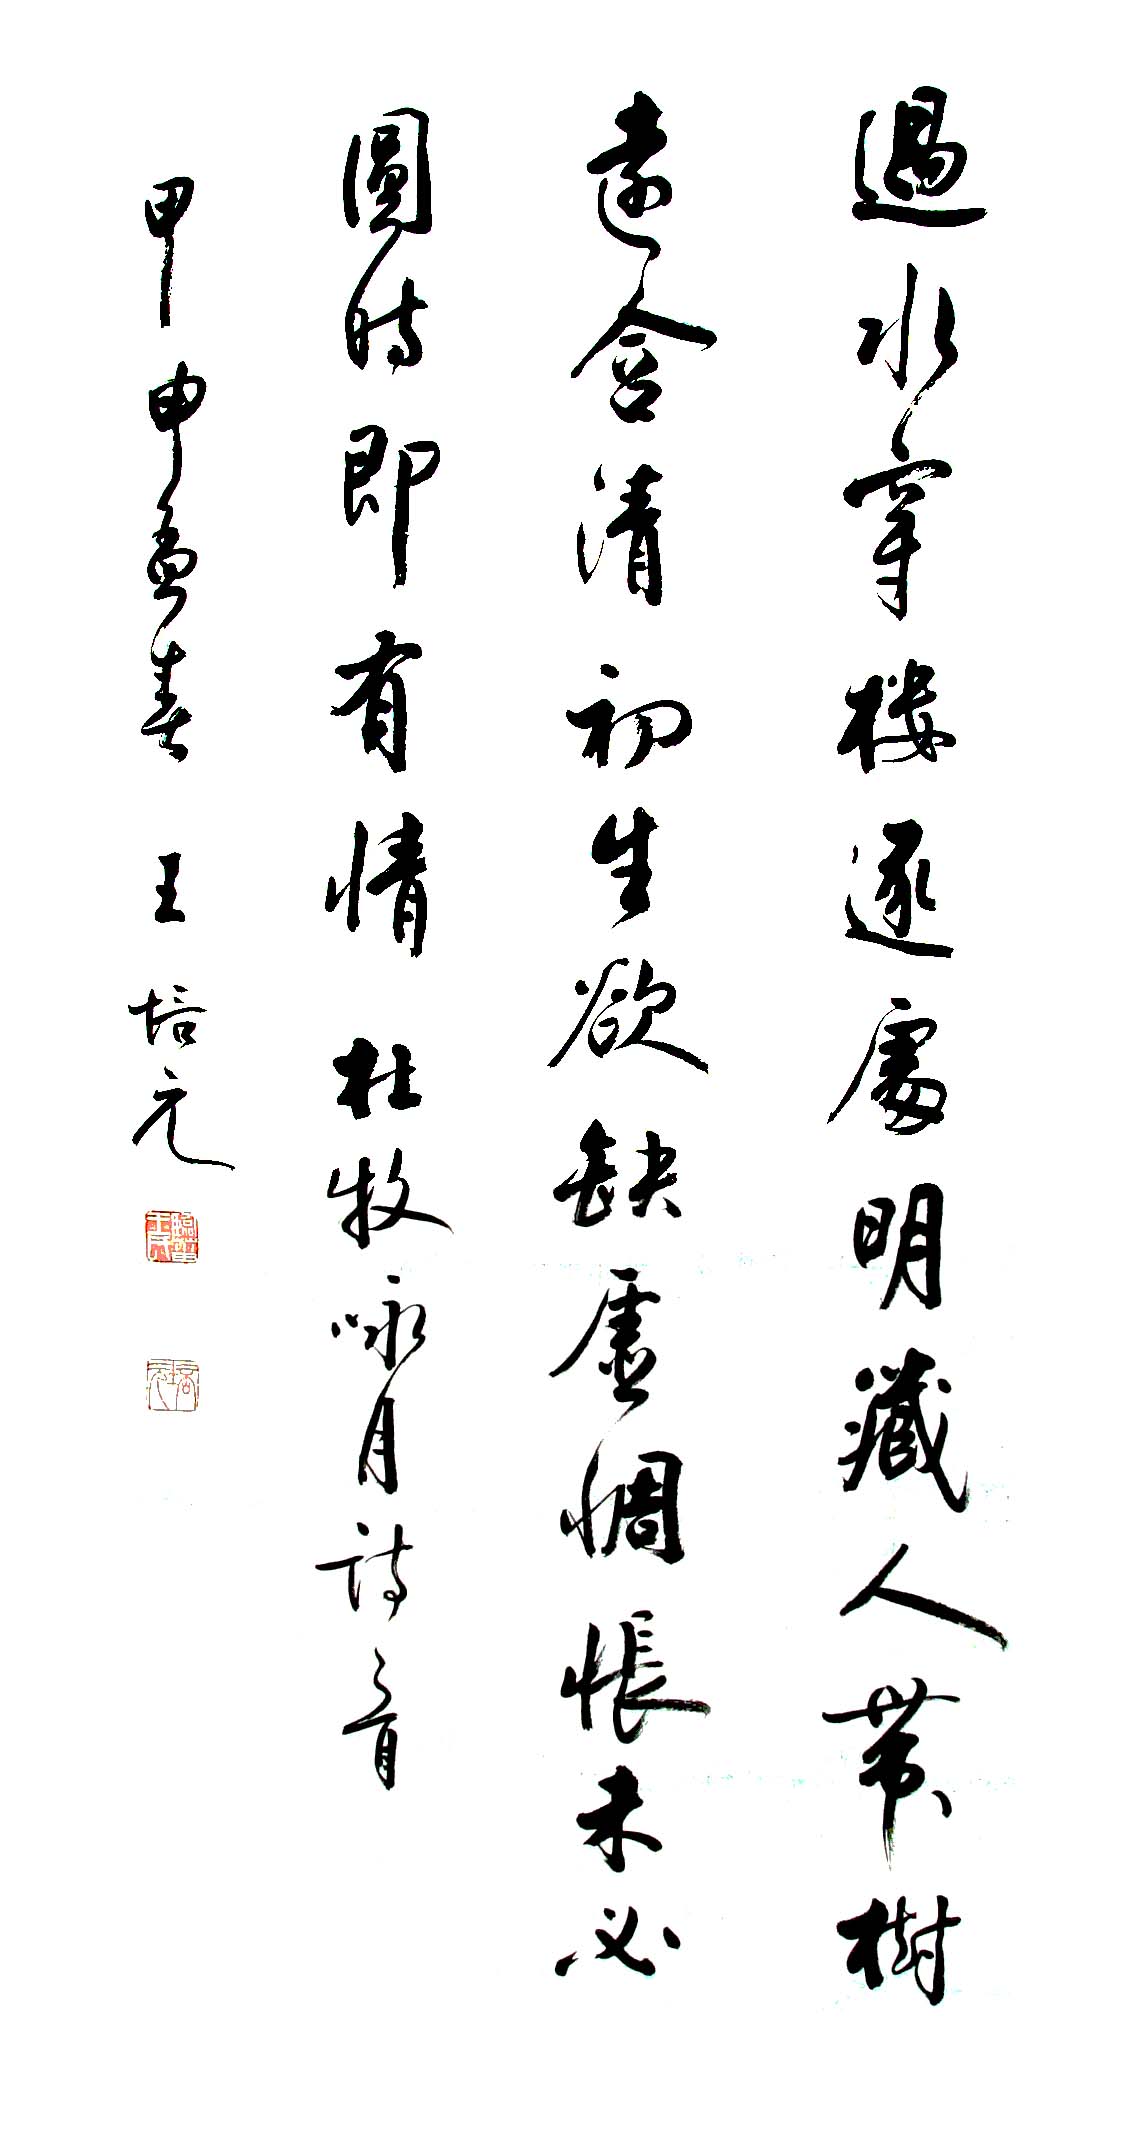 過水穿樓逐處明藏人帶樹
遠含清初生欲缺虛惆悵未必
圓時即有情 杜牧咏月詩
甲申孟春 王培元